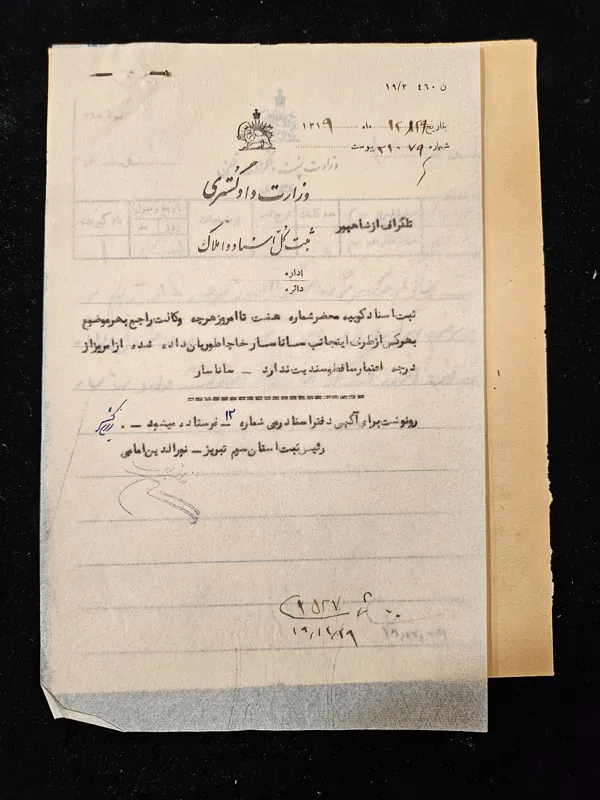 ن ٤٦٠ ١٩/٢
بتاریخ ۱۲/۸/۲۹ ماه ۱۳۱۹
شماره ۳۱۰۷۹ پیوست
وزارت دادگستری
تلگراف از شاهپور
ثبت کل اسناد و املاک
اداره
دائره
ثبت اسناد کوبید محضر شماره هشت تا امروز هرچه وکالت راجع بهر موضوع
بهرکس از طرف اینجانب ساناسار خاچاطوریان داده شده از امروز از
درجه اعتبار ساقط وسندیت ندارد – ساناسار
رونوشت برای آگهی دفتر اسناد رسمی شماره ۱۲ فرستاده میشود –
رئیس ثبت استان سوم تبریز – نورالدین امامی
۲۵۲۷
۱۹/۱۲/۲۹